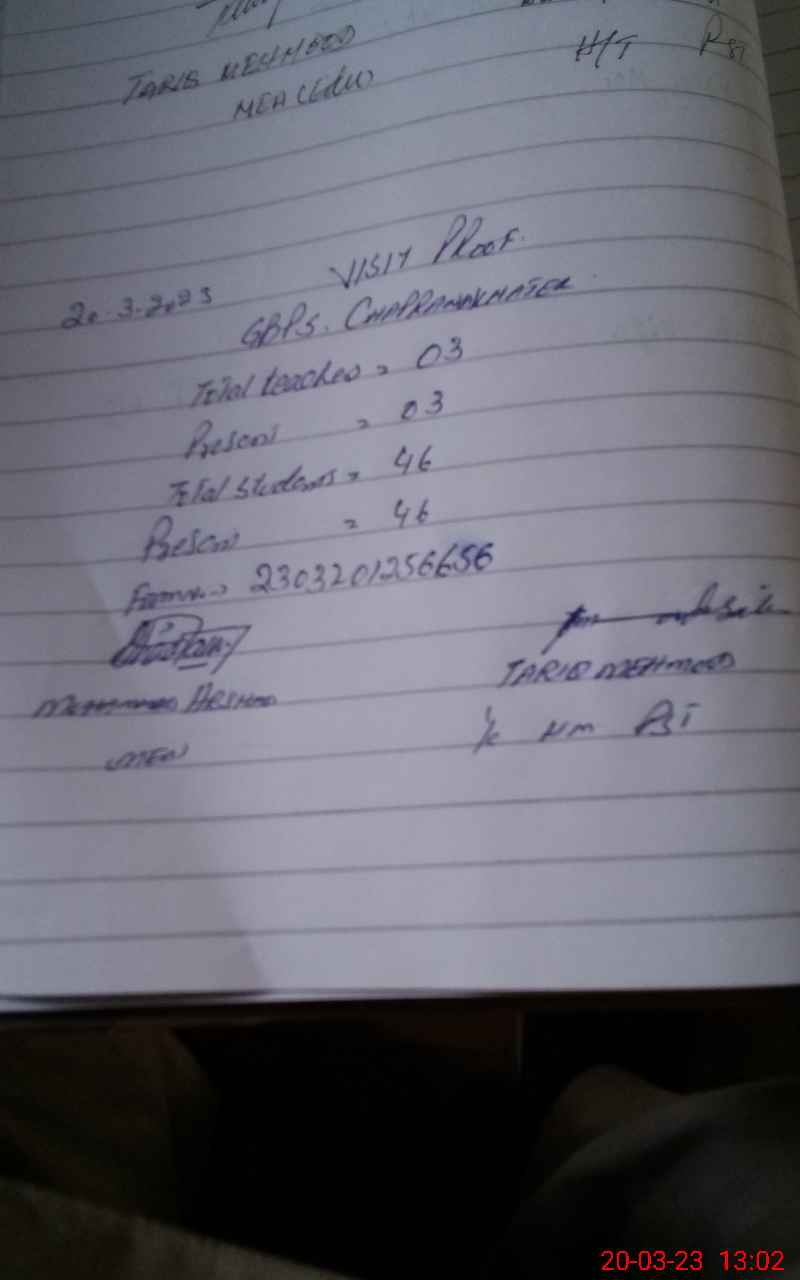 TARIQ MEHMOOD
H/T PST
MEA (Edu)
20.3.2023 VISIT PROOF.
GBPS. CHAPRAMAKHATEK
Total teaches = 03
Present = 03
Total students = 46
Present = 46
2303201256656
MOHAMMAD ARSHAD TARIQ MEHMOOD
MEA I/C HM PST
20-03-23 13:02